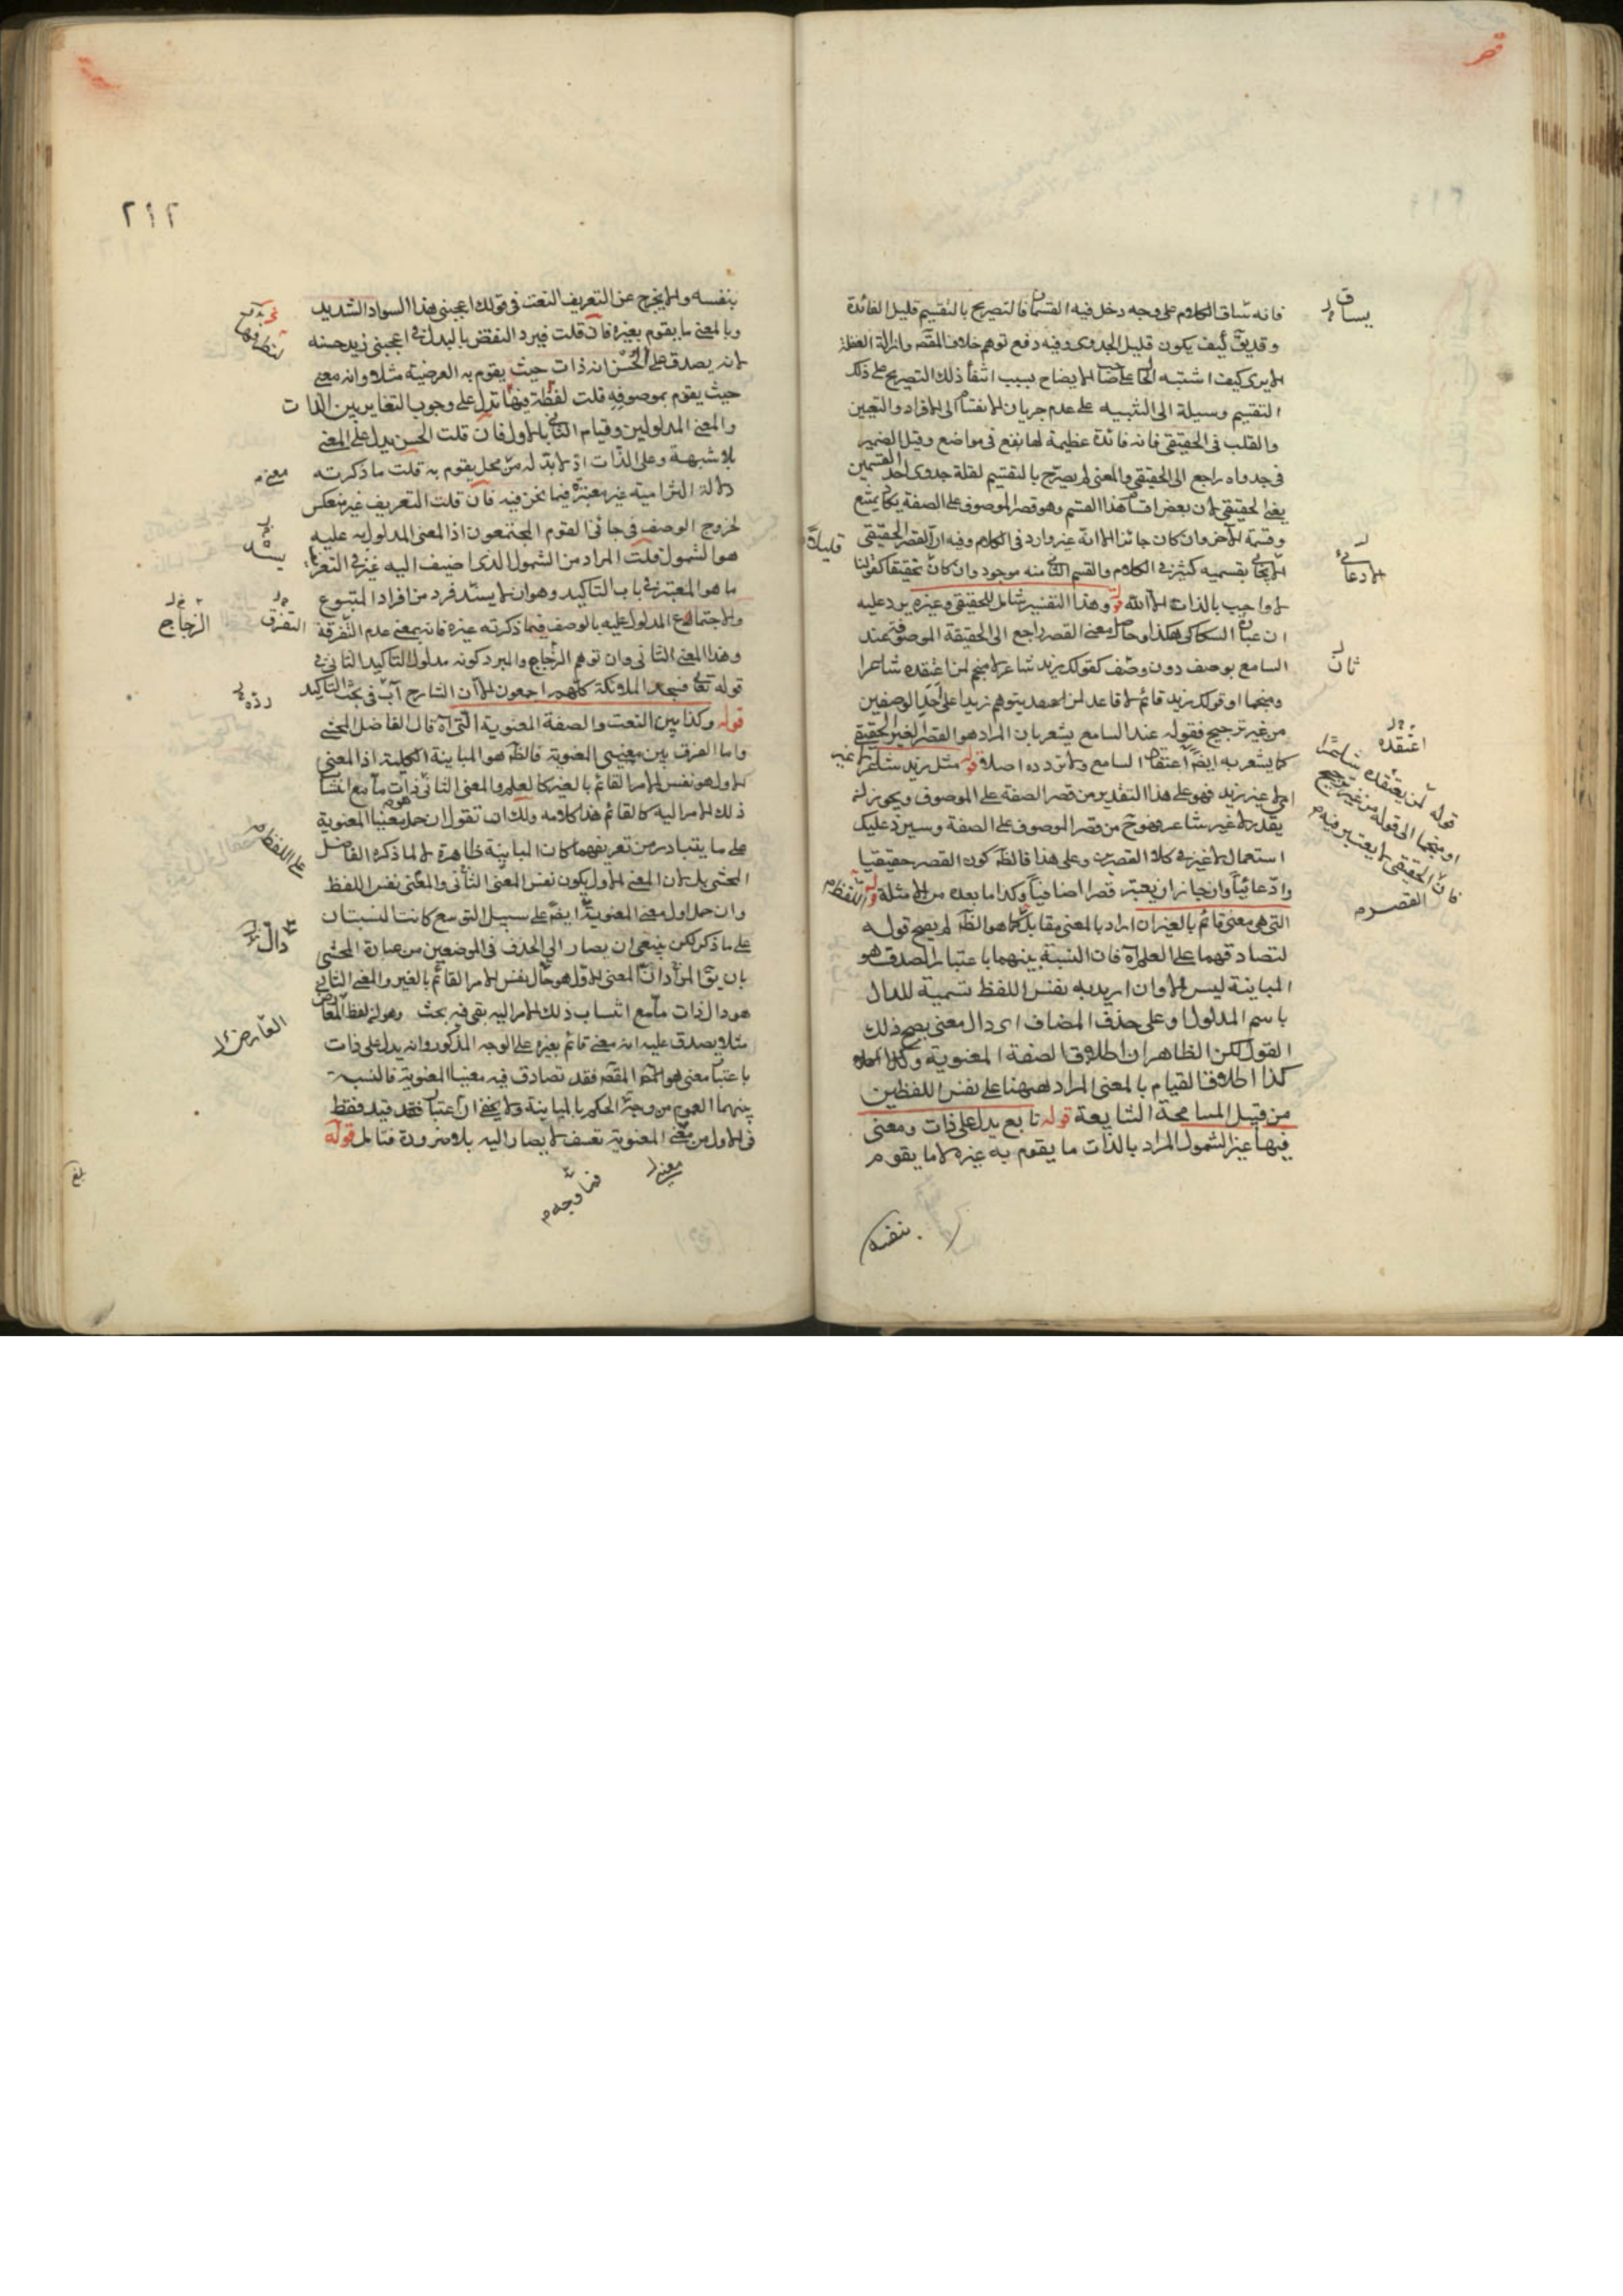 فانه ساق الكلام على وجه دخل فيه القسمان فالتصريح بالتقسيم قليل الفائدة
وقد يق كيف يكون قليل الجدوى وفيه دفع توهم خلاف المقص وازالة الغفلة
الا يرى كيف اشتبه الحا على صا الايضاح بسبب انتفا ذلك التصريح على ذلك
التقسيم وسيلة الى التنبيه على عدم جريان الانقسام الى الافراد والتعيين
والقلب فى الحقيقى فانه فائدة عظيمة لها نفع فى مواضع وقيل الضمير
فى جدواه راجع الى الحقيقى والمعنى لم يصرح بالتقسيم لقلة جدوى احد القسمين
يعنى الحقيقى لان بعض اقسا هذا القسم وهو قصر الموصوف على الصفة يكا يمتنع
وقسمة الاخر وان كان جائزا الا انه غير وارد فى الكلام وفيه ان القصر الحقيقى
بقسميه كثير فى الكلام والقسم الثانى منه موجود وان كان تحقيقا كقولنا
لا واجب بالذات الا الله قوله وهذا التفسير شامل للحقيقى وغيره يرد عليه
ان عبارة السكاكى هكذا وحاصل معنى القصر راجع الى الحقيقة الموصوف عند
السامع بوصف دون وصف كقولك زيد شاعر لا منجم لمن اعتقده شاعرا
ومنجما او قولك زيد قائم لا قاعد لمن يتوهم زيدا على احد الوصفين
من غير ترجيح فقوله عند السامع يشعر بان المراد هو القصر الغير الحقيقى
كما يشعر به ايضا اعتقا السامع وتردده اصلا قوله مثل زيد شاعر لا غير
اى لا غير زيد فهو على هذا التقدير من قصر الصفة على الموصوف ويجوز ان
يقدر لا غير شاعر وهو ح من قصر الموصوف على الصفة وسيرد عليك
استعمال لا غير فى كلا القصرين وعلى هذا فالظ كون القصر حقيقيا
وادعائيا وان جاز ان يعتبر قصرا اضافيا وكذا ما بعده من الامثلة قوله
التى هى معنى قائم بالغير ان اراد بالمعنى مقابل كما هو الظ لم يصح قوله
لتصادقهما على العلم اه فان النسبة بينهما باعتبار الصدق هو
المباينة ليس الا وان اريد به نفس اللفظ تسمية للدال
باسم المدلول او على حذف المضاف اى دال معنى يصح ذلك
القول لكن الظاهر ان اطلاق الصفة المعنوية
كذا اطلاق القيام بالمعنى المراد ههنا على نفس اللفظين
من قبيل المسامحة الشايعة قوله تابع يدل على ذات ومعنى
فيها غير الشمول المراد بالذات ما يقوم به غيره لا ما يقوم
بنفسه
يساق
قليلة
ثان
اعتقده
قوله لمن يعتقده شاعرا
او منجما الى قوله من غير ترجيح
فان الحقيقى لا يعتبر فيه
القصر
اللفظ
٢١٢
بنفسه والا يخرج عن التعريف النعت فى قولك اعجبنى هذا السواد الشديد
وبالمعنى ما يقوم بغيره فان قلت فيرد النقض بالبدل فى اعجبنى زيد حسنه
لانه يصدق على الحسن انه ذات حيث يقوم به العرضية مثلا وانه معنى
حيث يقوم بموصوفه قلت لفظة فيها تدل على وجوب التغاير بين الذات
والمعنى المدلولين وقيام الثانى بالاول فان قلت الحسن يدل على المعنى
بلا شبهة وعلى الذات اذ لا بد له من محل يقوم به قلت ما ذكرته
دلالة التزامية غير معتبرة فيما نحن فيه فان قلت التعريف غير منعكس
لخروج الوصف فى جائنى القوم المجتمعون اذ المعنى المدلول به عليه
هو الشمول قلت المراد من الشمول الذى اضيف اليه غير فى التعريف
ما هو المعتبر فى باب التاكيد وهو ان لا يشذ فرد من افراد المتبوع
والاجتماع المدلول عليه بالوصف فيما ذكرته غيره فانه بمعنى عدم التفرقة
وهذا المعنى الثانى وان توهم الزجاج والمبرد كونه مدلول التاكيد الثانى فى
قوله تعا فسجد الملائكة كلهم اجمعون الا ان الشارح فى بحث التاكيد
قوله وكذا بين النعت والصفة المعنوية التى اه قال الفاضل المحشى
واما الفرق بين معنيى المعنوية فالظ هو المباينة الكلية اذ المعنى
الاول هو نفس الامر القائم بالغير كالعلم والمعنى الثانى ذات ما مع انتساب
ذلك الامر اليه كالقائم هذا كلامه ولك ان تقول ان حمل معنيا المعنوية
على ما يتبادر من تعريفهما كان المباينة ظاهرة لا لما ذكره الفاضل
المحشى بل لان المعنى الاول يكون نفس المعنى الثانى والمعنى نفس اللفظ
وان حمل اول معنى المعنوية ايض على سبيل التوسع كانت النسبتان
على ما ذكر لكن ينبغى ان يصار الى الحذف فى الموضعين من عبارة المحشى
بان يق المراد ان المعنى الاول هو دال نفس الامر القائم بالغير والمعنى الثانى
هو دال ذات ما مع انتساب ذلك الامر اليه بقى فيه بحث وهو ان لفظ العارض
مثلا يصدق عليه انه معنى قائم بغيره على الوجه المذكور وانه يدل على ذات
باعتبار معنى هو المقص فقد تصادق فيه معنيا المعنوية فالنسبة
بينهما العموم من وجه الحكم بالمباينة ولا يخفى ان اعتبار قيد فقط
فى الاول من معنى المعنوية تعسف لا يصار اليه بلا ضرورة فتامل قوله
معنى
التفرق
الزجاج
رده
على اللفظ
دال
العارض
معنى
فما وجه
بلغ